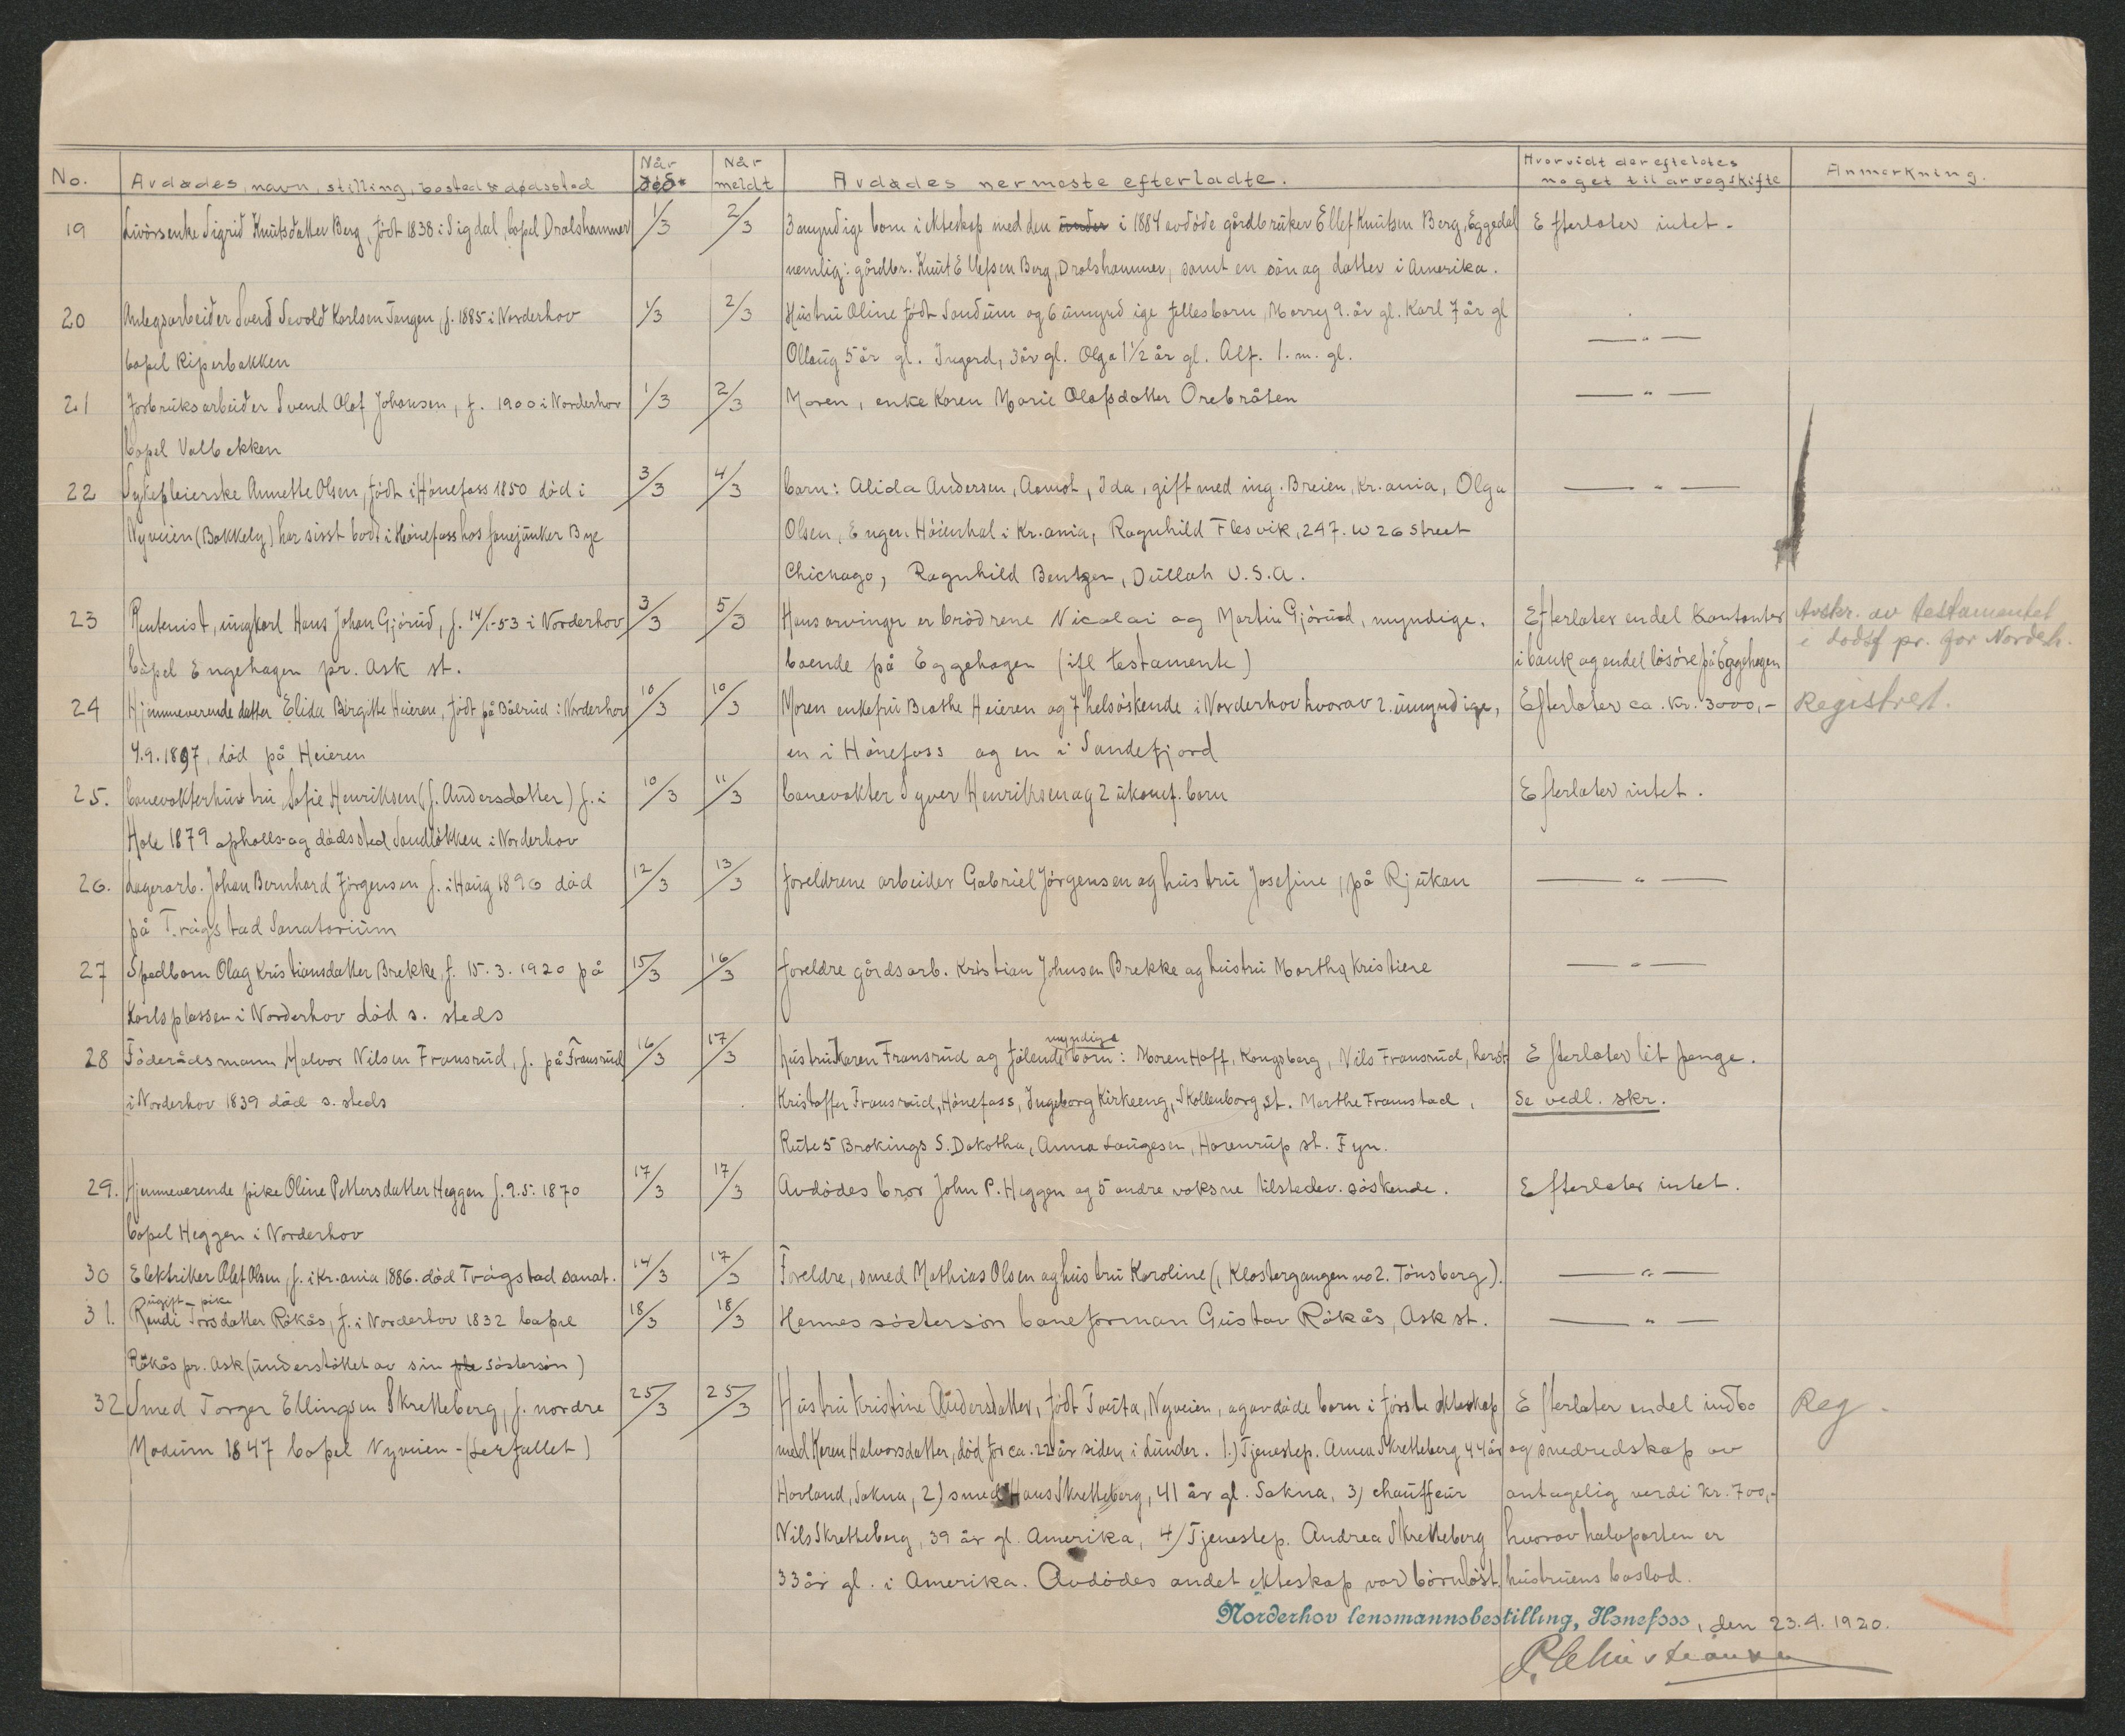 No. Avdødes navn, stilling, bosted & dødssted Når død Når meldt Avdødes nermeste efterladte. Hvorvidt der efterlates noget til arvogskifte Anmerkning.
19 Livörsenke Sigrid Knutsdatter Berg, födt 1838 i Sigdal, bopel Dralshammer 1/3 2/3 3 myndige born i ekteskap med den under i 1884 avdöde gårdbruker Ellef Knutsen Berg, Eggedal Efterlater intet.
nemlig: gårdbr. Knut Ellefsen Berg, Dralshammer, samt en sön og datter i Amerika.
20 Anlegsarbeider Svend Sevold Karlsen Tangen, f. 1885 i Norderhov 1/3 2/3 Hustru Oline födt Sandum og 6 umynd ige fellesbarn, Morry 9. år gl. Karl 7 år gl — " —
bopel Riperbakken Ollaug 5 år gl. Ingerd, 3 år gl. Olga 1 1/2 år gl. Alf. 1. m. gl.
21 Jorbruksarbeider Svend Olaf Johansen, f. 1900 i Norderhov 1/3 2/3 Moren, enke Karen Marie Olafsdatter Orebråten — " —
bopel Valbekken
22 Sykepleierske Annette Olsen, födt i Hönefoss 1850 död i 3/3 4/3 barn: Alida Andersen, Aamot, Ida, gift med ing. Breien, Kr.ania, Olga — " —
Nyveien (Bakkely) har sisst bodt i Hönefoss hos fanejunker Bye Olsen, Engen Höienhal i Kr.ania, Ragnhild Flesvik, 247. W 26 Street
Chichago, Ragnhild Bentzen, Dullah U.S.A.
23 Rentenist, ungkarl Hans Johan Gjörud, f. 14/1-53 i Norderhov 3/3 5/3 Hans arvinger er brödrene Nicolai og Martin Gjörud, myndige. Efterlater endel kontanter Avskr. av testamentet
bopel Engehagen pr. Ask st. boende på Eggehagen (ifl testamente) i bank og endel lösöre på Eggehagen i dødsf pr. for Nordeh.
24 Hjemmeverende datter Elida Birgitte Heieren, födt på Bålrud i Norderhov 10/3 10/3 Moren enkefru Beathe Heieren og 7 helsöskende i Norderhov hvorav 2. umyndige, Efterlater ca. kr. 3000,- Registrert.
4.9.1897, död på Heieren en i Hönefoss og en i Sandefjord
25. banevokterhustru Sofie Henriksen (f. Andersdatter) f. i 10/3 11/3 banevokter Syver Henriksen og 2 ukonf. barn Efterlater intet.
Hole 1879 opholls- og dödssted Sandløkken i Norderhov
26. Lagerarb. Johan Bernhard Jörgensen f. i Haug 1896 död 12/3 13/3 foreldrene arbeider Gabriel Jörgensen og hustru Josefine, på Rjukan — " —
på Trögstad Sanatorium
27 Spedbarn Olag Kristiansdatter Brekke, f. 15.3.1920 på 15/3 16/3 foreldre gårdsarb. Kristian Johnsen Brekke og hustru Martha Kristiene — " —
Karlsplassen i Norderhov död s. steds
28 Föderådsmann Halvor Nilsen Fransrud, f. på Fransrud 16/3 17/3 hustru Karen Fransrud og fölende myndige born: Maren Hoff, Kongsberg, Nils Fransrud, herst Efterlater lit penge.
i Norderhov 1839 död s. steds Kristoffer Fransrud, Hönefoss, Ingeborg Kirkeeng, Skollenborg st. Marthe Framstad, Se vedl. skr.
Rute 5 Brokings S. Dakotha, Anna Laugesen, Harenrup st. Fyn.
29. Hjemmeverende pike Oline Pettersdatter Heggen f. 9.5.1870 17/3 17/3 Avdödes bror John P. Heggen og 5 andre voksne tilstedev. söskende. Efterlater intet.
bopel Heggen i Norderhov
30 Elektriker Olef Olsen, f. i Kr.ania 1886. död Trögstad sanat. 14/3 17/3 Foreldre, smed Mathias Olsen og hustru Karoline (, Klostergangen no 2. Tönsberg). — " —
31. ugift pike Randi Torsdatter Råkås, f. i Norderhov 1832 bopel 18/3 18/3 Hennes söstersön baneforman Gustav Råkås, Ask st. — " —
Råkås pr. Ask (understöttet av sin söstersön)
32 Smed Torger Ellingsen Skretteberg, f. nordre 25/3 25/3 Hustru Kristine Andersdatter, födt Tauta, Nyveien, og avdöde barn i förste ekteskap Efterlater endel indbo Reg.
Modum 1847 bopel Nyveien - (Lerfallet) med Karen Halvorsdatter, död for ca. 22 år siden i Lunder. 1.) Tjenestep. Anna Skretteberg 44 år og smedredskap av
Hovland, Sokna, 2) smed Hans Skretteberg, 41 år gl. Sokna, 3) chauffeur antagelig verdi kr. 700,-
Nils Skretteberg, 39 år gl. Amerika, 4) Tjenestep. Andrea Skretteberg hvorav halvparten er
33 år gl. i Amerika. Avdödes andet ekteskap var börnlöst. hustruens boslod.
Norderhov lensmannsbestilling, Hønefoss, den 23.4.1920.
P. Christiansen